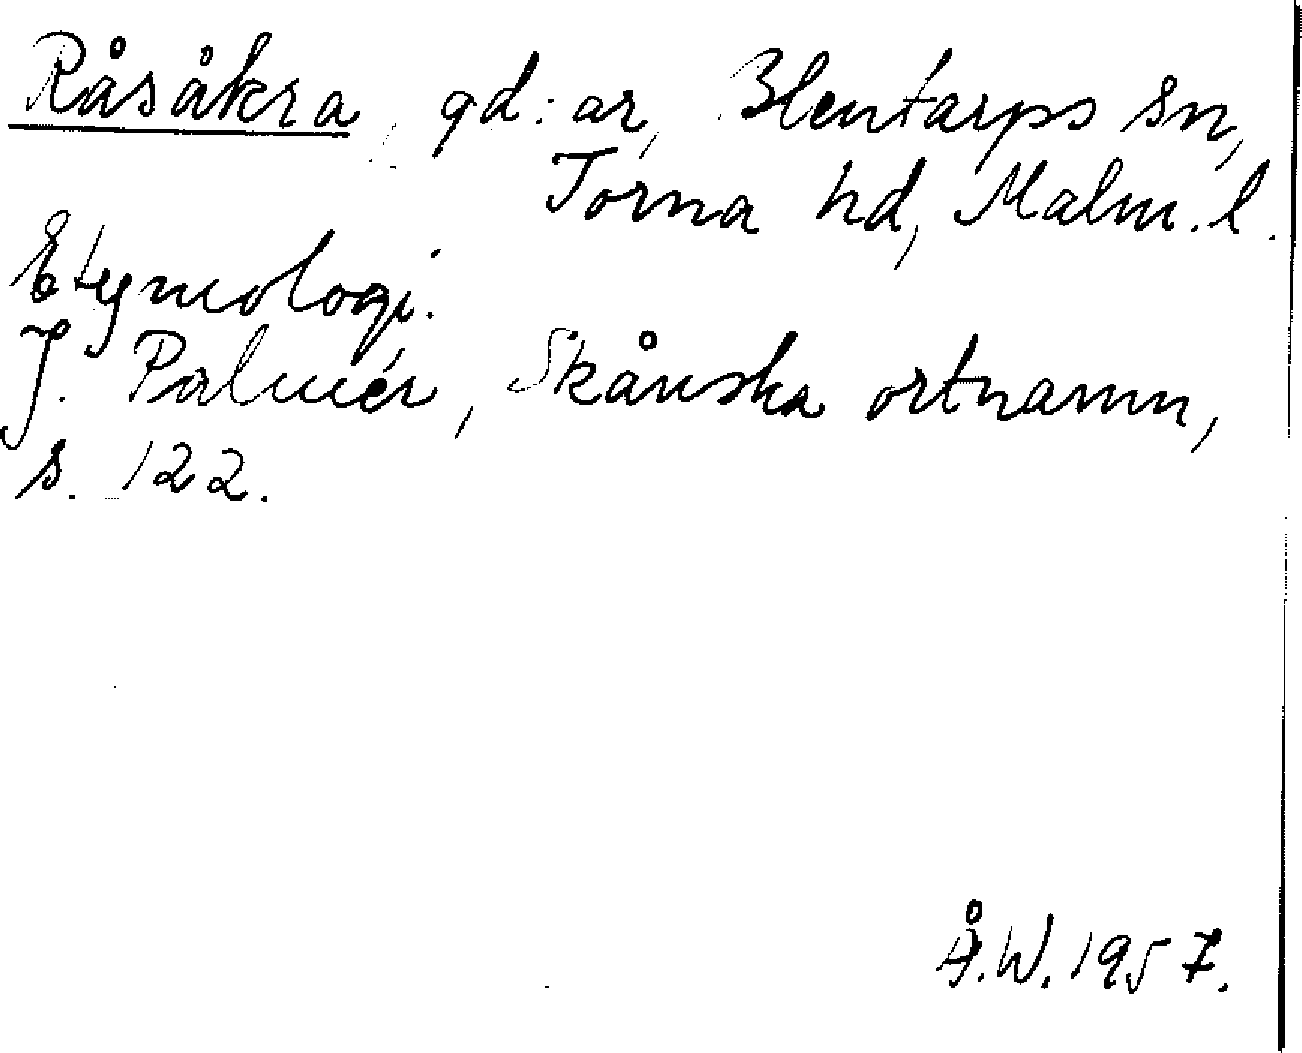 Råsåkra, gd:ar, Blentarps sn,
Torna hd, Malm.l.
Etymologi.
J. Palmér, Skånska ortnamn,
s. 122.
Å.W. 1957.